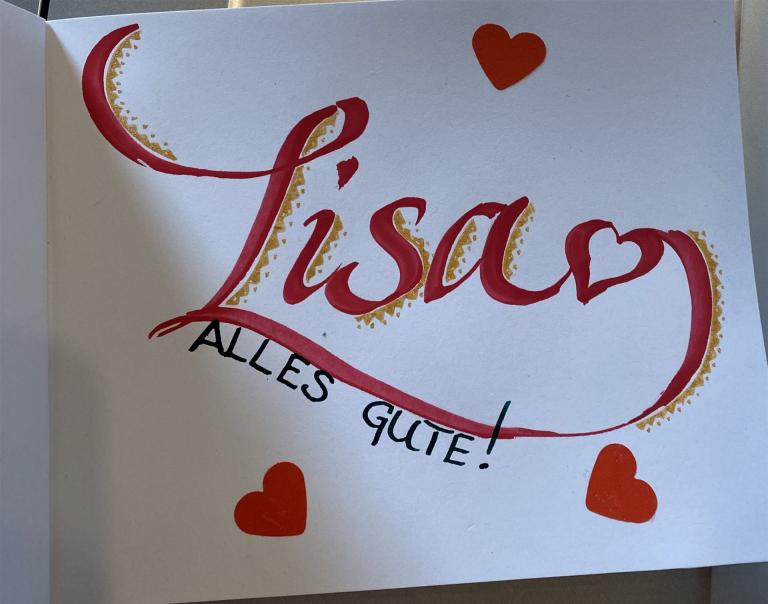 Lisa
ALLES GUTE!